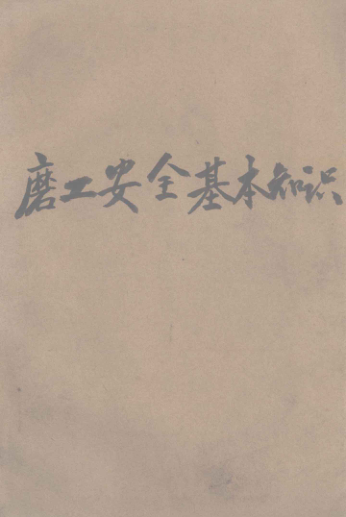 磨工安全基本知识